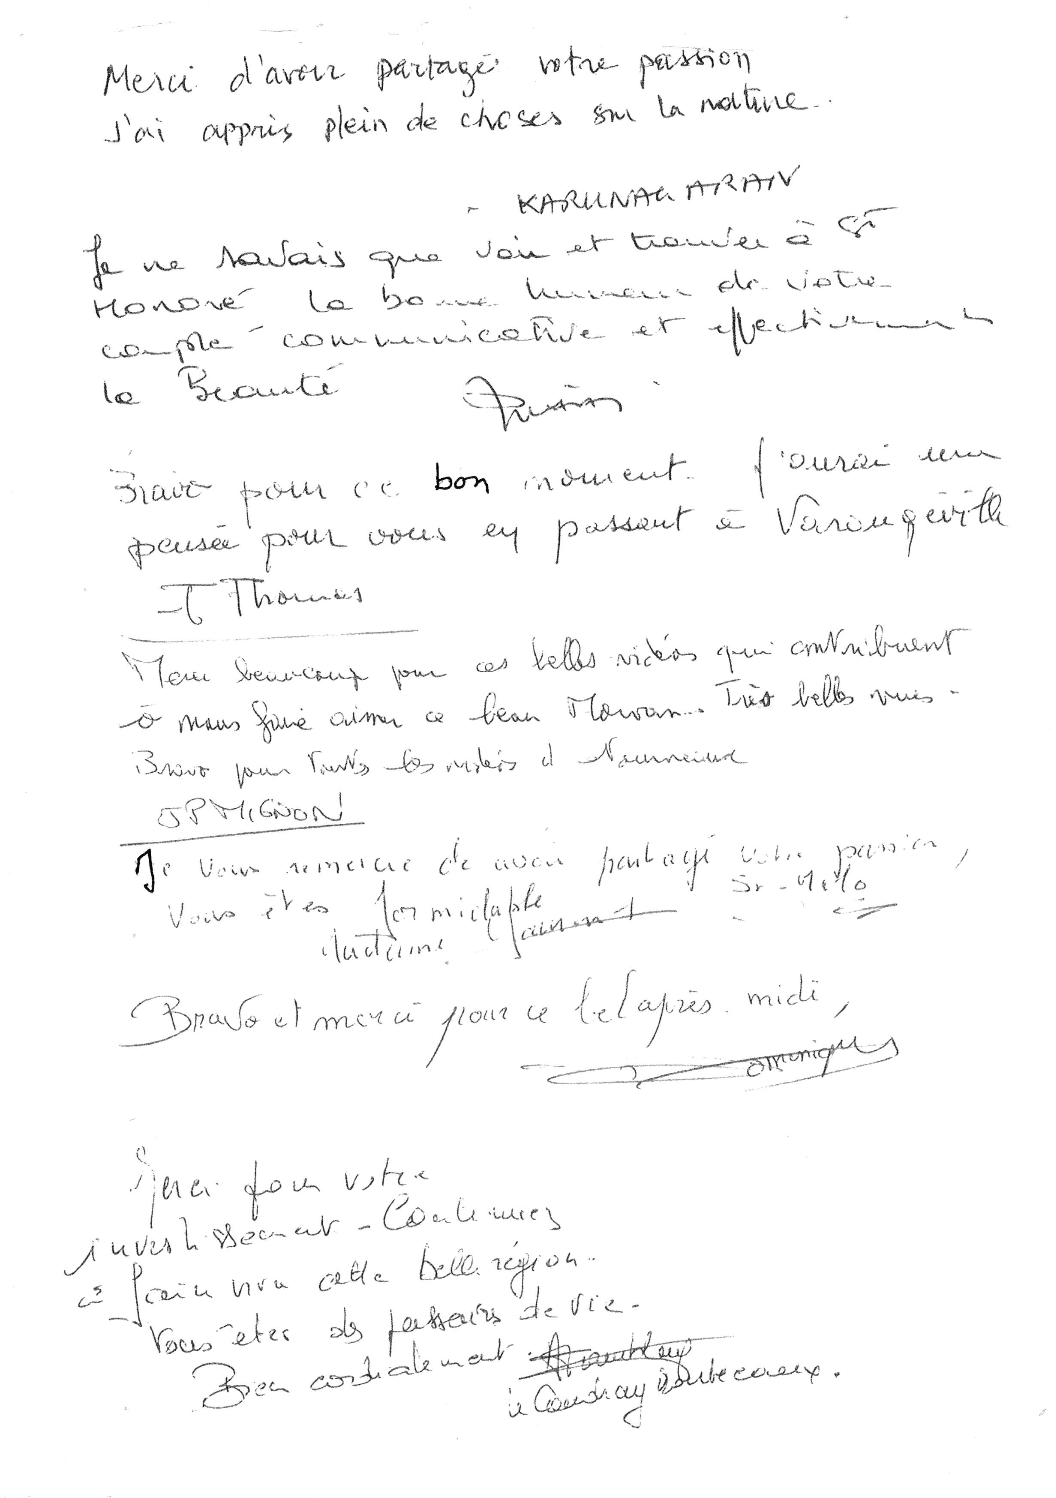 Merci d'avoir partagé votre passion
J'ai appris plein de choses sur la nature.
- KARUNAGARAN
Je ne savais que voir et trouver à St
Honoré la bonne humeur de votre
couple communicative et effectivement
la Beauté
Bravo pour ce bon moment. J'aurai une
pensée pour vous en passant à Varengeville
Thomas
Merci beaucoup pour ces belles vidéos qui contribuent
à nous faire aimer ce beau Morvan. Très belles vues.
Bravo pour toutes les vidéos
JP MIGNON
Je vous remercie de avoir partagé votre passion,
Vous êtes formidable
Bravo et merci pour ce bel après-midi,
Dominique
Merci pour votre
investissement - Continuez
à faire vivre cette belle région.
Vous êtes des passeurs de vie.
Bien cordialement
à Coudray